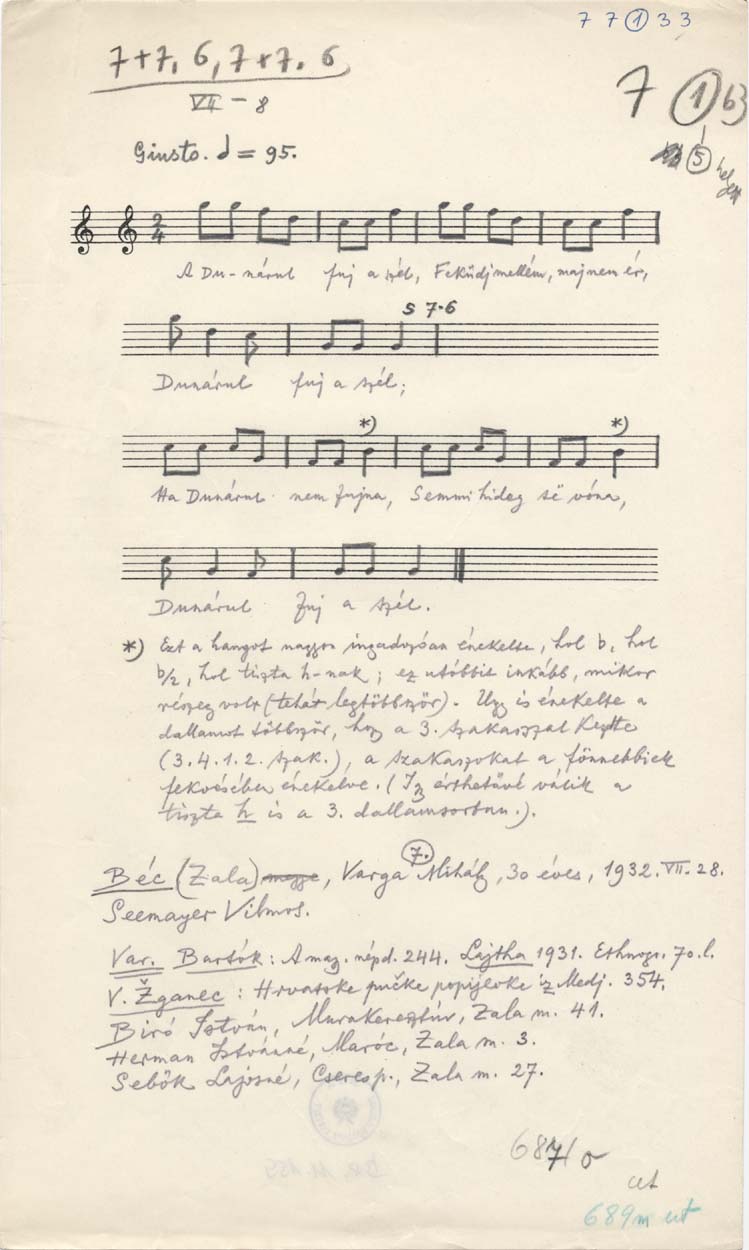 7 7 1 3 3
7+7, 6, 7+7. 6
VII – 8
7 1 b)
5 helyett
Giusto. = 95.
2/4
A Du-nárul fuj a szél, Feküdj mellém, maj nem ér,
s 7-6
Dunárul fuj a szél;
*) *)
Ha Dunárul nem fujna, Semmi hideg së vóna,
Dunárul fuj a szél.
*) Ezt a hangot nagyon ingadozóan énekelte, hol b, hol
b/2, hol tiszta h-nak; ez utóbbit inkább, mikor
részeg volt (tehát legtöbbször). Ugy is énekelte a
dallamot többször, hogy a 3. szakasszal kezdte
(3. 4. 1. 2. szak.), a szakaszokat a fönnebbiek
fekvésében énekelve. (Igy érthetővé válik a
tiszta h is a 3. dallamsorban.).
7.
Béc (Zala) megye, Varga Mihály, 30 éves, 1932. VII. 28.
Seemayer Vilmos.
Var. Bartók: A mag. népd. 244. Lajtha 1931. Ethnogr. 70. l.
V. Žganec: Hrvatske pučke popijevke iz Medj. 354.
Biró István, Murakeresztúr, Zala m. 41.
Herman Istvánné, Maróc, Zala m. 3.
Sebők Lajosné, Cseresp., Zala m. 27.
ut
689m ut